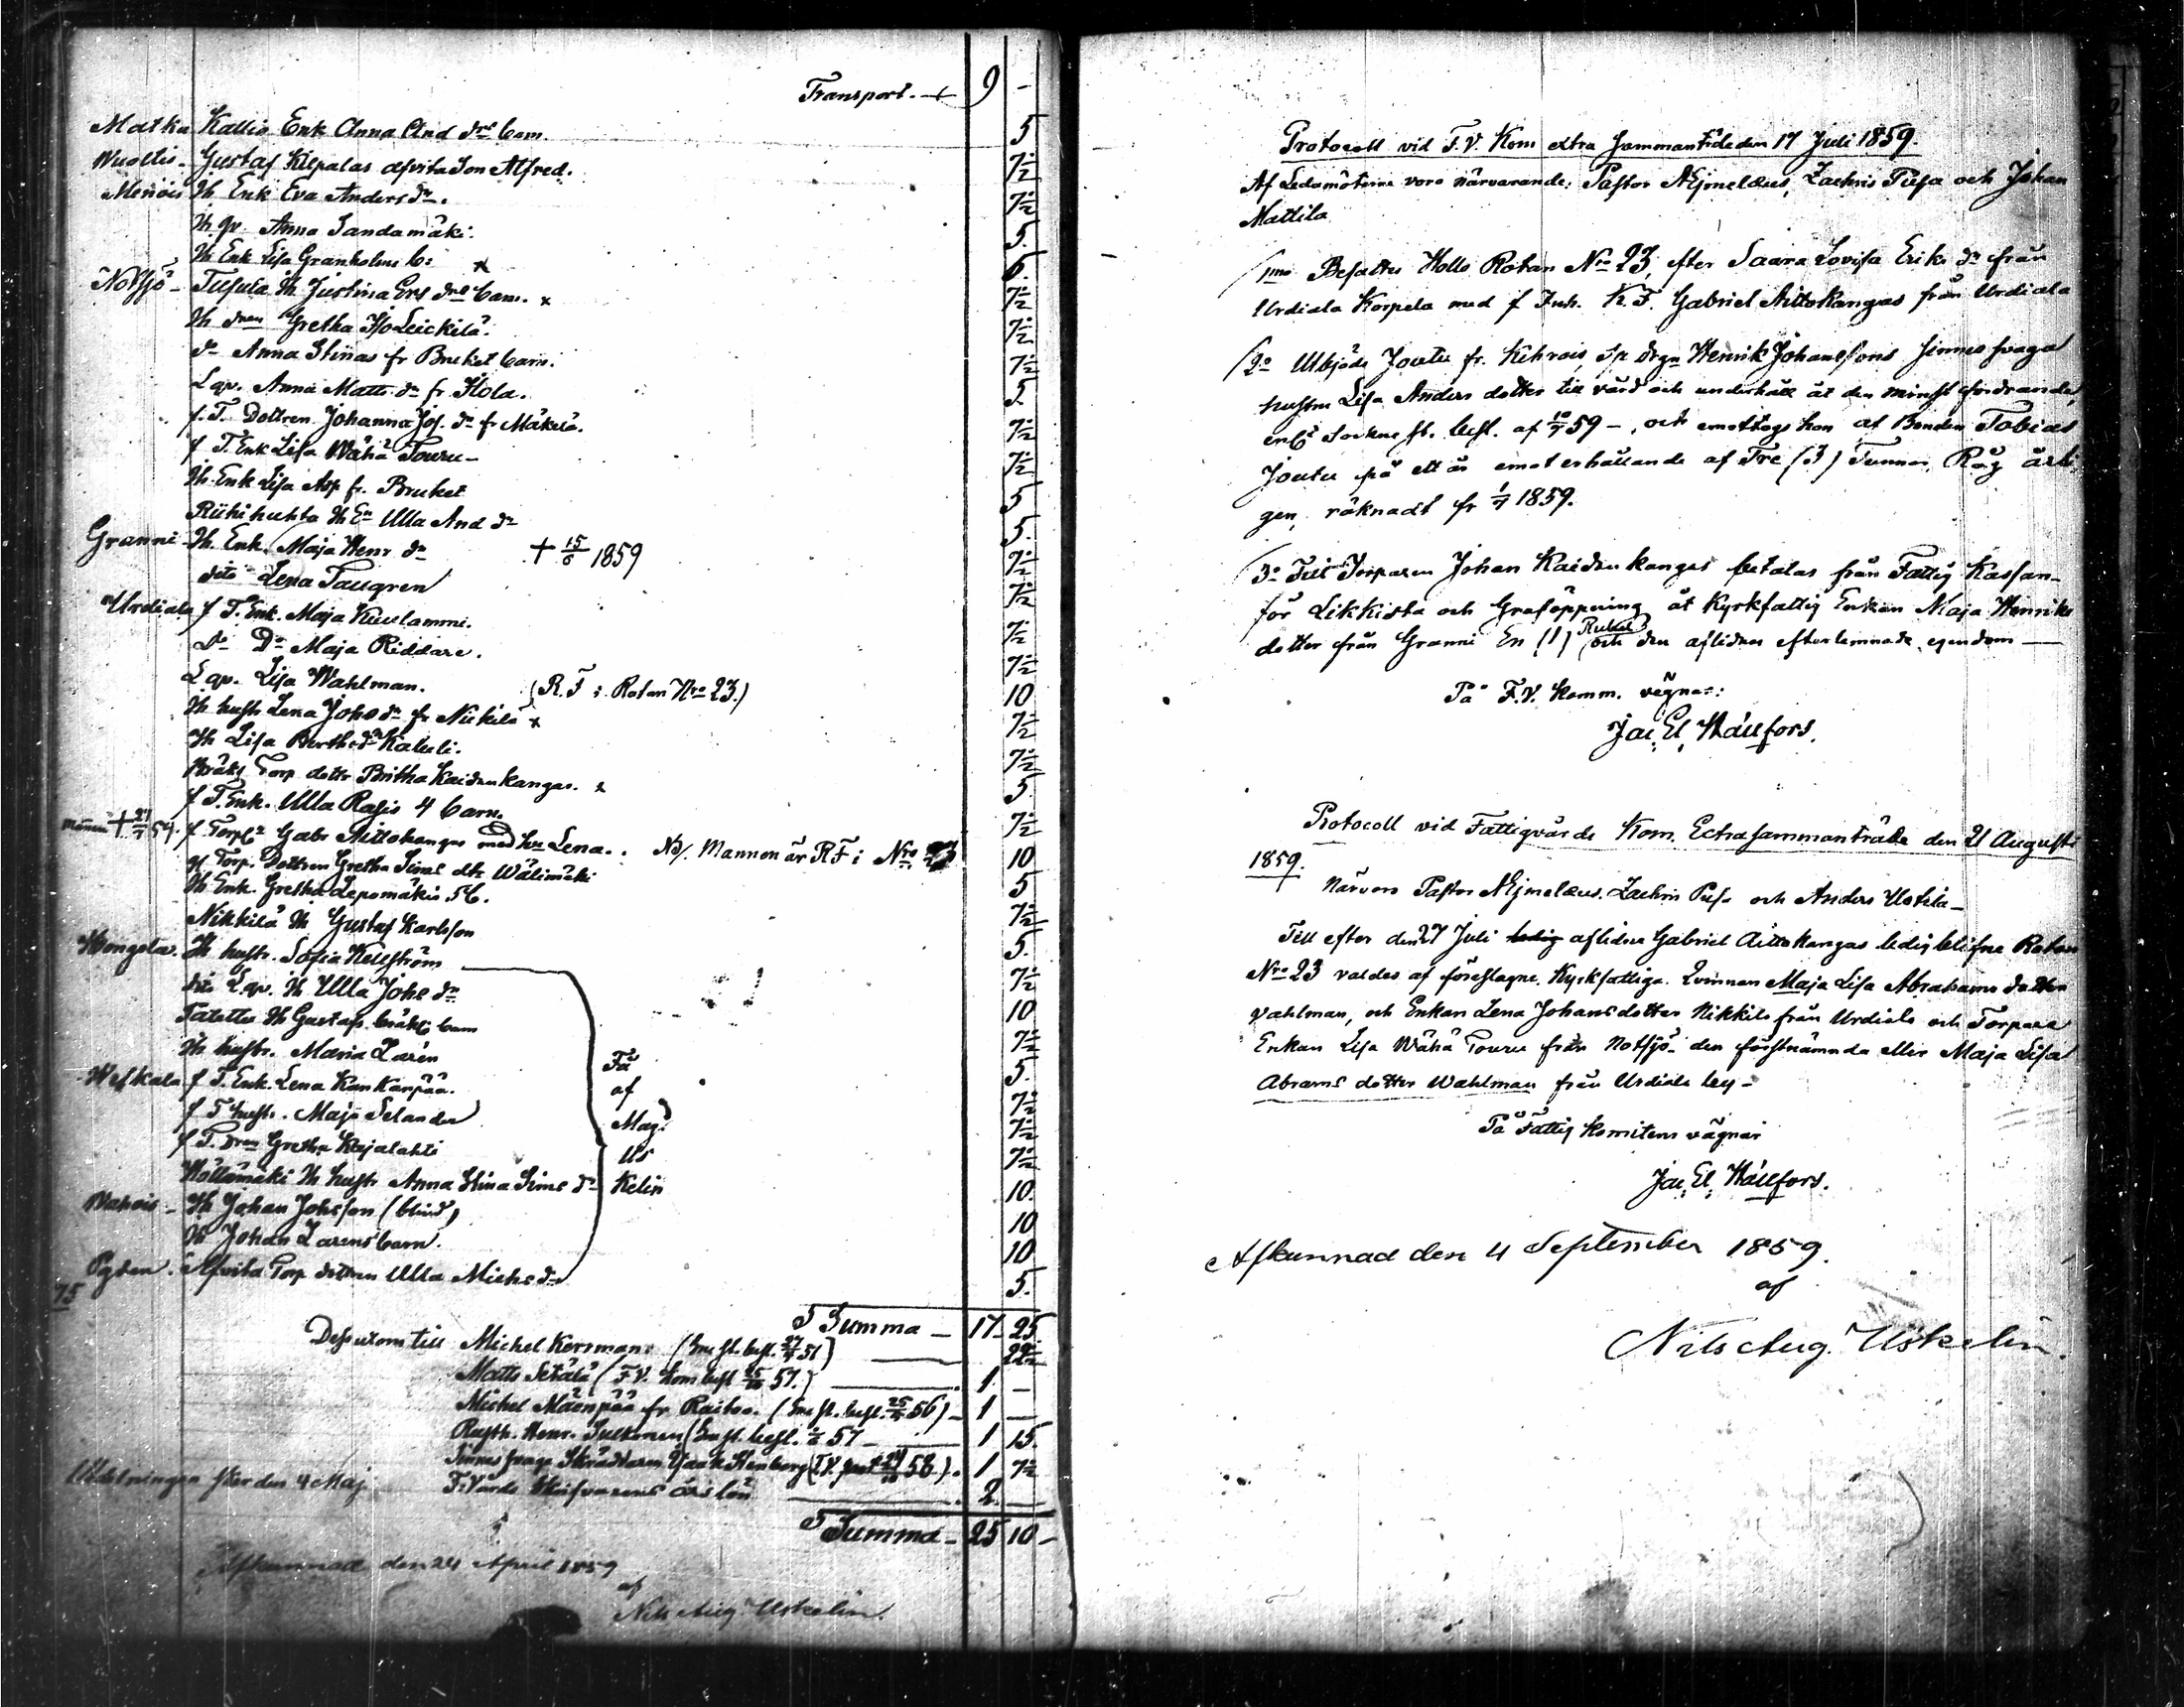 Transport. 9 -
Matku Kallio Enk Anna And dr barn. 5
Wuoltis. Gustaf Kilpalas afvita Son Alfred. 7½
Menois Ih Enk Eva Anders dr. 7½
Ih qv. Anna Sandamäki. 5.
Ih Enk Lisa Granholms b: x 6.
Notsjö - Tusula Ih Justina Ers drs barn. x 7½
Ih dren Gretha Leickilä. 7½
dr Anna Stinas fr Bruket barn. 7½
L qv. Anna Matts dr fr Hola. 5.
f. T. Dottren Johanna Joh. dr fr Mäkelä. 7½
f T. Enk Lisa Wähä Touru - 7½
Ih. Enk Lisa Asp fr. Bruket 5
Riihihuhta Ih En Ulla And dr 5.
Granni - Ih. Enk. Maja Henr dr + 15/6 1859 7½
dito Lena Taugren 7½
Urdiala f T. Enk. Maja Kuulammi. 7½
do Do Maja Riddare. 7½
L qv. Lisa Wahlman. (R. F i Rotan Nro 23.) 10
Ih hustr Lena Johs dr fr Nickilä x 7½
Ih Lisa Berths dr Kaluli. 7½
Torp dottr Britha Kaidankangas. x 5
f T. Enk. Ulla Rasis 4 barn. 7½
Mannen + 27/7 59. f Torp Gabr Aittokangas med hu Lena. . NB/. Mannen är RF i Nro 23 10
Torp. Dottren Gretha Sims dtr Wälimäki 5
Ih Enk. Gretha Lepomäkis. 56. 7½
Nikkilä Ih Gustaf Karlsson 5.
Hongola. Ih hustr. Sofia Kellström 7½
dito L. qv. Ih Ulla Johs dr 10
Ih Gustafs barn 7½
Ih hustr. Maria Larén Få 5.
Weskala f T. Enk. Lena Kankanpää. af 7½
f T hustr. Maja Selander Mag. 7½
f T. Dren Gretha Kajalahti Us 7½
Höllämäki Ih hustr Anna Stina Sims dr Kelin 10.
Wahois - Ih Johan Johsson (blind) 10
Ih Johan Larens barn. 10
Afvita Torp dottren Ulla Michs dr 5.
75
Summa - 17 25
Dessutom till Michel Kersman (Sn st. besl. 27/4 51) 22½
Matts Setälä (F.V. kom besl 57.) 1. -
Michel Mäenpää fr Raitoo. (Sn st. besl. 25/ 56) - 1 -
Rusth. Henr. Sulkonen (Sn st. besl. 57 - 1 15.
Sinnessvage Skräddaren Isaak Stenberg (F.V. 58). 1 7½
Utdelningen sker den 4 Maj. F. Vårds Skrifvarens års lön 2. -
Summa - 25 10 -
Afkunnad den 24 April 1859
af
Nils Aug. Uskelin.
Protocoll vid F. V. Kom extra Sammanträde den 17 Juli 1859.
Af Ledamöterne voro närvarande: Pastor Aejmelæus, Zachris Pusa och Johan
Mattila
1mo Besattes Hollo Rotan Nro 23, efter Saara Lovisa Eriks dr från
Urdiala Korpela med f Inh. K. F. Gabriel Aittokangas från Urdiala
2o Utbjöds Joutu fr. Kehrois, Henrik Johanssons sinnessvaga
hustru Lisa Anders dotter till vård och underhåll åt den minst fordrande,
enl. Sockne st. besl. af 10/7 59 -, och emottogs hon af Bonden Tobias
Joutu på ett år emot erhållande af Tre (3) Tunnor Råg årli-
gen, räknadt fr 1/7 1859.
3o Till Torparen Johan Kaidankangas betalas från Fattig Kassan-
för Likkista och Graföppning åt Kyrkfattig Enkan Maja Henriks
dotter från Granni En (1) Rubel och den aflidnes efterlemnade egendom -
På F.V. Komm. vägnar:
Jac. El. Hällfors.
Protocoll vid Fattigvårds Kom. Extra sammanträde den 21 Augusti
1859.
Närvoro Pastor Aejmelæus. Zachris Pusa och Anders Uotila -
Till efter den 27 Juli ledig aflidne Gabriel Aittokangas ledig blifne Rotan
Nro 23 valdes af föreslagne Kyrkfattiga. Qvinnan Maja Lisa Abrahams dotter
Vahlman, och Enkan Lena Johansdotter Nikkilä från Urdiala och Torpare
Enkan Lisa Wähä Touru från Notsjö - den förstnämnda eller Maja Lisa
Abrams dotter Wahlman från Urdiala by -
På Fattig Komitens vägnar
Jac. El. Hällfors.
Afkunnad den 4 September 1859.
af
Nils Aug. Uskelin.